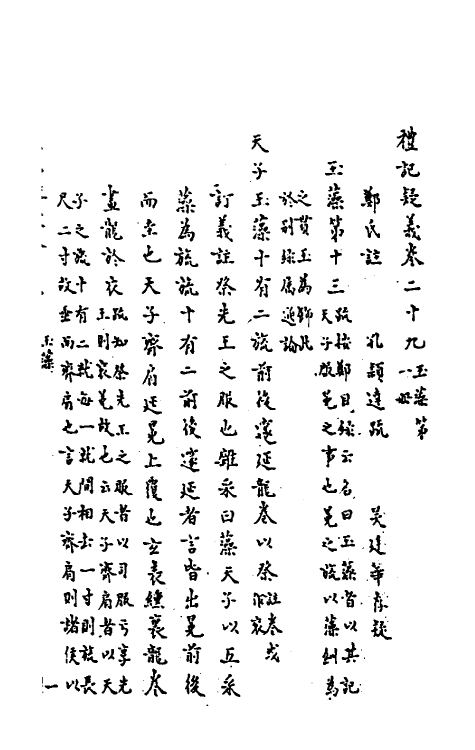 禮記疑義卷二十九 玉藻第一册
鄭氏註 孔穎達疏 吳廷華存疑
玉藻第十三 疏按鄭目錄云名曰玉藻者以其記天子服冕之事也冕之旒以藻紃為
之貫玉為飾此於別錄屬通論
天子玉藻十有二旒前後邃延龍卷以祭 註卷或作衮
訂義註祭先王之服也雜采曰藻天子以五采
藻為旒旒十有二前後邃延者言皆出冕前後
而垂也天子齊肩延冕上覆也玄表纁裏龍卷
畫龍於衣 疏知祭先王之服者以司服云享先王則衮冕故也云天子齊肩者以天
子之旒十有二就每一就間相去一寸則旒長尺二寸故垂而齊肩也言天子齊肩則諸侯以
玉藻
一